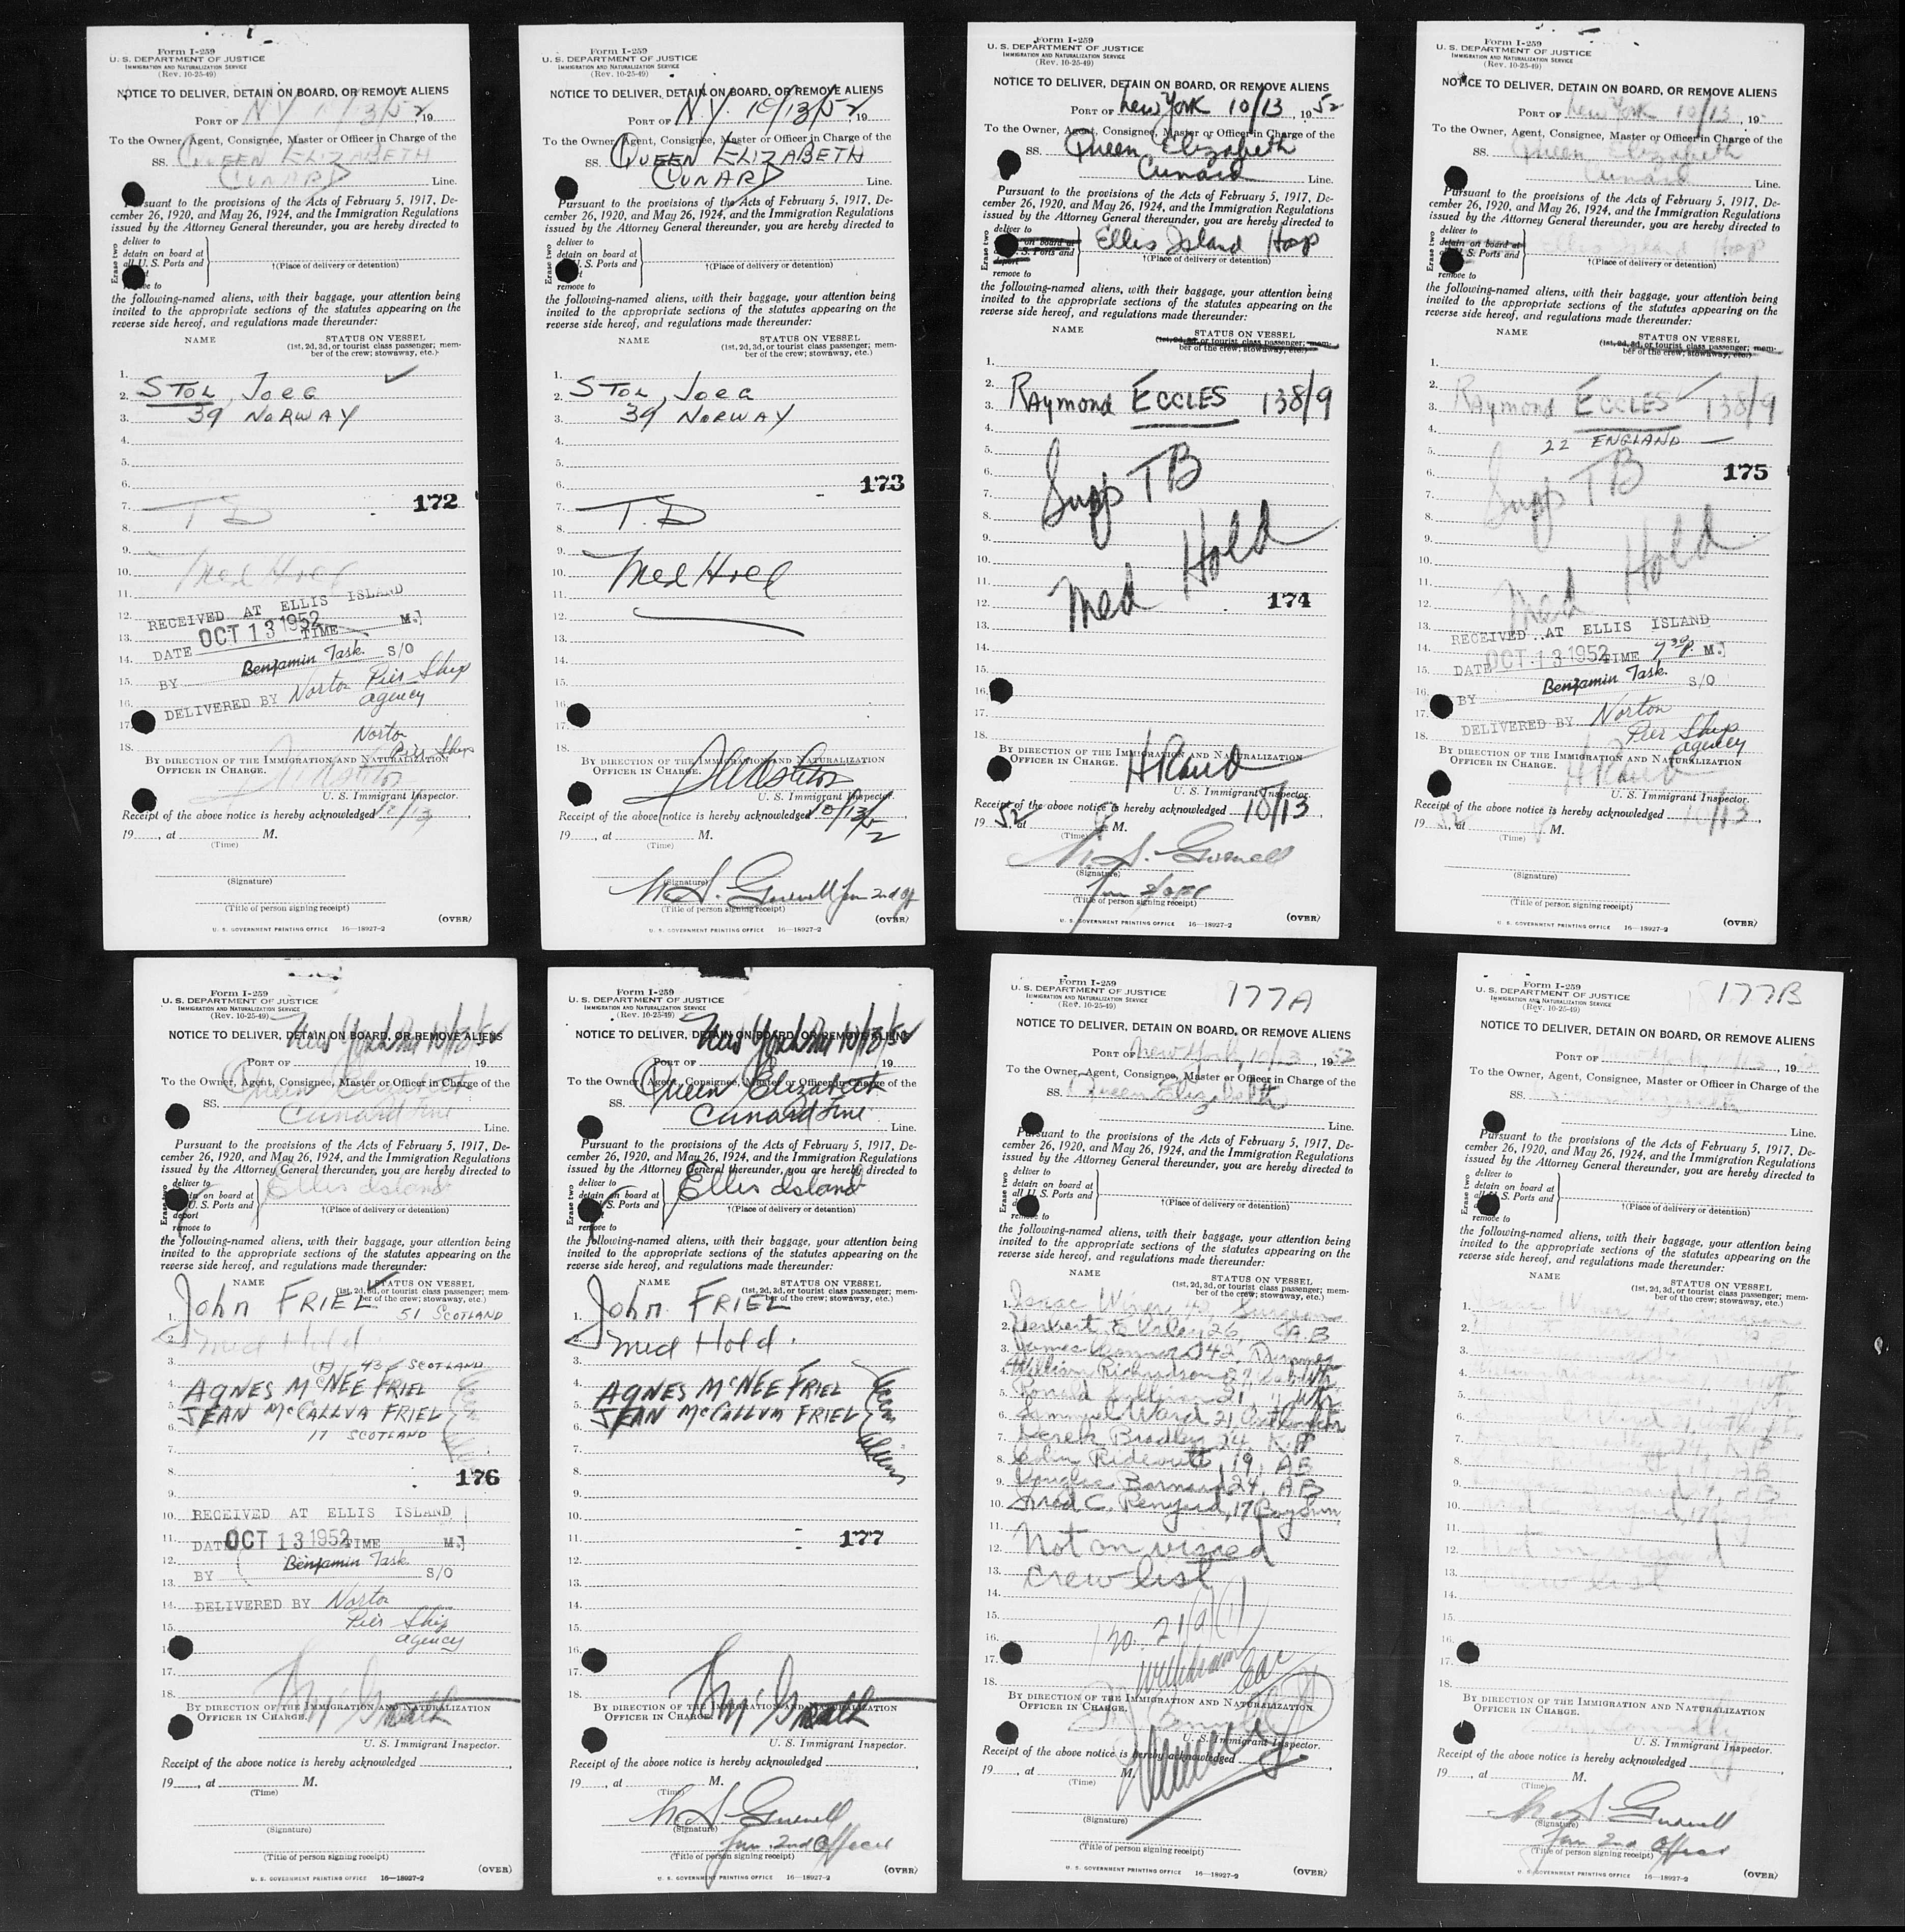 Form I-259
U. S. DEPARTMENT OF JUSTICE
IMMIGRATION AND NATURALIZATION SERVICE
(Rev. 10-25-49)
NOTICE TO DELIVER, DETAIN ON BOARD, OR REMOVE ALIENS
PORT OF N.Y. 10/13/52 19
To the Owner, Agent, Consignee, Master or Officer in Charge of the
SS. QUEEN ELIZABETH
CUNARD Line.
Pursuant to the provisions of the Acts of February 5, 1917, De-
cember 26, 1920, and May 26, 1924, and the Immigration Regulations
issued by the Attorney General thereunder, you are hereby directed to
Erase two
deliver to
detain on board at
all U. S. Ports and
remove to
†(Place of delivery or detention)
the following-named aliens, with their baggage, your attention being
invited to the appropriate sections of the statutes appearing on the
reverse side hereof, and regulations made thereunder:
NAME STATUS ON VESSEL
(1st, 2d, 3d, or tourist class passenger; mem-
ber of the crew; stowaway, etc.)
1.
2. STOL, JOEG
3. 39 NORWAY
4.
5.
6.
172
7. T D
8.
9.
10. Med Hold
11.
12. RECEIVED AT ELLIS ISLAND
13. DATE OCT 13 1952 TIME M.
14. Benjamin Task S/O
15. BY
16. DELIVERED BY Norton Pier Ship
agency
17.
Norton
18. Pier Ship
BY DIRECTION OF THE IMMIGRATION AND NATURALIZATION
OFFICER IN CHARGE.
U. S. Immigrant Inspector.
Receipt of the above notice is hereby acknowledged 10/13
19, at M.
(Time)
(Signature)
(Title of person signing receipt)
(OVER)
U. S. GOVERNMENT PRINTING OFFICE 16—18927-2
Form I-259
U. S. DEPARTMENT OF JUSTICE
IMMIGRATION AND NATURALIZATION SERVICE
(Rev. 10-25-49)
NOTICE TO DELIVER, DETAIN ON BOARD, OR REMOVE ALIENS
PORT OF N.Y. 10/13/52 19
To the Owner, Agent, Consignee, Master or Officer in Charge of the
SS. QUEEN ELIZABETH
CUNARD Line.
Pursuant to the provisions of the Acts of February 5, 1917, De-
cember 26, 1920, and May 26, 1924, and the Immigration Regulations
issued by the Attorney General thereunder, you are hereby directed to
Erase two
deliver to
detain on board at
U. S. Ports and
remove to
†(Place of delivery or detention)
the following-named aliens, with their baggage, your attention being
invited to the appropriate sections of the statutes appearing on the
reverse side hereof, and regulations made thereunder:
NAME STATUS ON VESSEL
(1st, 2d, 3d, or tourist class passenger; mem-
ber of the crew; stowaway, etc.)
1.
2. STOL, JOEG
3. 39 NORWAY
4.
5.
6. 173
7. T. D
8.
9.
10. Med Hold
11.
12.
13.
14.
15.
16.
17.
18.
BY DIRECTION OF THE IMMIGRATION AND NATURALIZATION
OFFICER IN CHARGE.
U. S. Immigrant Inspector.
Receipt of the above notice is hereby acknowledged 10/13/52
19, at M.
(Time)
(Signature)
Jun 2nd Of
(Title of person signing receipt)
(OVER)
U. S. GOVERNMENT PRINTING OFFICE 16—18927-2
Form I-259
U. S. DEPARTMENT OF JUSTICE
IMMIGRATION AND NATURALIZATION SERVICE
(Rev. 10-25-49)
NOTICE TO DELIVER, DETAIN ON BOARD, OR REMOVE ALIENS
PORT OF New York 10/13, 1952
To the Owner, Agent, Consignee, Master or Officer in Charge of the
SS. Queen Elizabeth
Cunard Line.
Pursuant to the provisions of the Acts of February 5, 1917, De-
cember 26, 1920, and May 26, 1924, and the Immigration Regulations
issued by the Attorney General thereunder, you are hereby directed to
Erase two
deliver to
on board at
U. S. Ports and
remove to
Ellis Island Hosp
†(Place of delivery or detention)
the following-named aliens, with their baggage, your attention being
invited to the appropriate sections of the statutes appearing on the
reverse side hereof, and regulations made thereunder:
NAME STATUS ON VESSEL
(1st, 2d, 3d, or tourist class passenger; mem-
ber of the crew; stowaway, etc.)
1.
2.
3. Raymond ECCLES 138/9
4.
5.
6. Susp TB
7.
8.
9.
10. Med Hold
11.
12. 174
13.
14.
15.
16.
17.
18.
BY DIRECTION OF THE IMMIGRATION AND NATURALIZATION
OFFICER IN CHARGE.
U. S. Immigrant Inspector.
Receipt of the above notice is hereby acknowledged 10/13
1952 at M.
(Time)
(Signature)
(Title of person signing receipt)
(OVER)
U. S. GOVERNMENT PRINTING OFFICE 16—18927-2
Form I-259
U. S. DEPARTMENT OF JUSTICE
IMMIGRATION AND NATURALIZATION SERVICE
(Rev. 10-25-49)
NOTICE TO DELIVER, DETAIN ON BOARD, OR REMOVE ALIENS
PORT OF New York 10/13, 19
To the Owner, Agent, Consignee, Master or Officer in Charge of the
SS. Queen Elizabeth
Cunard Line.
Pursuant to the provisions of the Acts of February 5, 1917, De-
cember 26, 1920, and May 26, 1924, and the Immigration Regulations
issued by the Attorney General thereunder, you are hereby directed to
Erase two
deliver to
detain on board at
U. S. Ports and
remove to
Ellis Island Hosp
†(Place of delivery or detention)
the following-named aliens, with their baggage, your attention being
invited to the appropriate sections of the statutes appearing on the
reverse side hereof, and regulations made thereunder:
NAME STATUS ON VESSEL
(1st, 2d, 3d, or tourist class passenger; mem-
ber of the crew; stowaway, etc.)
1.
2.
3. Raymond ECCLES 138/9
4.
5. 22 ENGLAND
6. Susp TB 175
7.
8.
9.
10. Hold
11.
12. Med
13. RECEIVED AT ELLIS ISLAND
14. DATE OCT 13 1952 TIME 7 30 P. M.
15. Benjamin Task S/O
16. BY
17. DELIVERED BY Norton
Pier Ship
agency
18.
BY DIRECTION OF THE IMMIGRATION AND NATURALIZATION
OFFICER IN CHARGE.
U. S. Immigrant Inspector.
Receipt of the above notice is hereby acknowledged 10/13
1952, at M.
(Time)
(Signature)
(Title of person signing receipt)
(OVER)
U. S. GOVERNMENT PRINTING OFFICE 16—18927-2
Form I-259
U. S. DEPARTMENT OF JUSTICE
IMMIGRATION AND NATURALIZATION SERVICE
(Rev. 10-25-49)
NOTICE TO DELIVER, DETAIN ON BOARD, OR REMOVE ALIENS
New York 10/13/52
PORT OF 19
To the Owner, Agent, Consignee, Master or Officer in Charge of the
SS. Queen Elizabeth
Cunard Line
Line.
Pursuant to the provisions of the Acts of February 5, 1917, De-
cember 26, 1920, and May 26, 1924, and the Immigration Regulations
issued by the Attorney General thereunder, you are hereby directed to
Erase two
deliver to
on board at
U. S. Ports and
deport
remove to
Ellis Island
†(Place of delivery or detention)
the following-named aliens, with their baggage, your attention being
invited to the appropriate sections of the statutes appearing on the
reverse side hereof, and regulations made thereunder:
NAME STATUS ON VESSEL
(1st, 2d, 3d, or tourist class passenger; mem-
ber of the crew; stowaway, etc.)
1. John FRIEL 51 SCOTLAND
2. Med Hold
3. (F) 43 SCOTLAND
4. AGNES McNEE FRIEL
5. JEAN McCALLUM FRIEL
6. 17 SCOTLAND
7.
8. 176
9.
10. RECEIVED AT ELLIS ISLAND
11. DATE OCT 13 1952 TIME M.
12. Benjamin Task
13. BY S/O
14. DELIVERED BY Norton
15. Pier Ship
agency
16.
17.
18.
BY DIRECTION OF THE IMMIGRATION AND NATURALIZATION
OFFICER IN CHARGE.
U. S. Immigrant Inspector.
Receipt of the above notice is hereby acknowledged
19, at M.
(Time)
(Signature)
(Title of person signing receipt)
(OVER)
U. S. GOVERNMENT PRINTING OFFICE 16—18927-2
Form I-259
U. S. DEPARTMENT OF JUSTICE
IMMIGRATION AND NATURALIZATION SERVICE
(Rev. 10-25-49)
NOTICE TO DELIVER, DETAIN ON BOARD, OR REMOVE ALIENS
New York 10/13/52
PORT OF 19
To the Owner, Agent, Consignee, Master or Officer in Charge of the
SS. Queen Elizabeth
Cunard Line
Line.
Pursuant to the provisions of the Acts of February 5, 1917, De-
cember 26, 1920, and May 26, 1924, and the Immigration Regulations
issued by the Attorney General thereunder, you are hereby directed to
Erase two
deliver to
detain on board at
S. Ports and
remove to
Ellis Island
†(Place of delivery or detention)
the following-named aliens, with their baggage, your attention being
invited to the appropriate sections of the statutes appearing on the
reverse side hereof, and regulations made thereunder:
NAME STATUS ON VESSEL
(1st, 2d, 3d, or tourist class passenger; mem-
ber of the crew; stowaway, etc.)
1. John FRIEL
2. Med Hold.
3.
4. AGNES McNEE FRIEL
5. JEAN McCALLUM FRIEL
aliens
6.
7.
8.
9.
10.
11. 177
12.
13.
14.
15.
16.
17.
18.
BY DIRECTION OF THE IMMIGRATION AND NATURALIZATION
OFFICER IN CHARGE.
U. S. Immigrant Inspector.
Receipt of the above notice is hereby acknowledged
19, at M.
(Time)
(Signature)
Jun. 2nd Officer
(Title of person signing receipt)
(OVER)
U. S. GOVERNMENT PRINTING OFFICE 16—18927-2
Form I-259
U. S. DEPARTMENT OF JUSTICE
IMMIGRATION AND NATURALIZATION SERVICE
(Rev. 10-25-49)
177A
NOTICE TO DELIVER, DETAIN ON BOARD, OR REMOVE ALIENS
PORT OF New York, 10/13, 1952
To the Owner, Agent, Consignee, Master or Officer in Charge of the
SS. Queen Elizabeth
Line.
Pursuant to the provisions of the Acts of February 5, 1917, De-
cember 26, 1920, and May 26, 1924, and the Immigration Regulations
issued by the Attorney General thereunder, you are hereby directed to
Erase two
deliver to
detain on board at
all U. S. Ports and
remove to
†(Place of delivery or detention)
the following-named aliens, with their baggage, your attention being
invited to the appropriate sections of the statutes appearing on the
reverse side hereof, and regulations made thereunder:
NAME STATUS ON VESSEL
(1st, 2d, 3d, or tourist class passenger; mem-
ber of the crew; stowaway, etc.)
1. Isaac Winer Surgeon
2. Herbert E 26, AB
3. James Connors 42,
4. William Richardson
5. Ronald Sullivan 21
6. Samuel Ward 21
7. Derek Bradley 24, K.P
8. Colin Rideoutt, 19, AB
9. Douglas Barnard 24, AB
10. Fred C. Renyard, 17
11.
12. Not on visaed
13. crew list
14.
15.
16.
17.
18.
BY DIRECTION OF THE IMMIGRATION AND NATURALIZATION
OFFICER IN CHARGE.
U. S. Immigrant Inspector.
Receipt of the above notice is hereby acknowledged
19, at M.
(Time)
(Signature)
(Title of person signing receipt)
(OVER)
U. S. GOVERNMENT PRINTING OFFICE 16—18927-2
Form I-259
U. S. DEPARTMENT OF JUSTICE
IMMIGRATION AND NATURALIZATION SERVICE
(Rev. 10-25-49)
177B
NOTICE TO DELIVER, DETAIN ON BOARD, OR REMOVE ALIENS
PORT OF New York, 10/13, 19
To the Owner, Agent, Consignee, Master or Officer in Charge of the
SS. Queen Elizabeth
Line.
Pursuant to the provisions of the Acts of February 5, 1917, De-
cember 26, 1920, and May 26, 1924, and the Immigration Regulations
issued by the Attorney General thereunder, you are hereby directed to
Erase two
deliver to
detain on board at
all U. S. Ports and
remove to
†(Place of delivery or detention)
the following-named aliens, with their baggage, your attention being
invited to the appropriate sections of the statutes appearing on the
reverse side hereof, and regulations made thereunder:
NAME STATUS ON VESSEL
(1st, 2d, 3d, or tourist class passenger; mem-
ber of the crew; stowaway, etc.)
1.
2.
3.
4.
5.
6.
7. 24, K.P
8. 19, AB
9. AB
10.
11.
12. Not on visaed
13. crew list
14.
15.
16.
17.
18.
BY DIRECTION OF THE IMMIGRATION AND NATURALIZATION
OFFICER IN CHARGE.
U. S. Immigrant Inspector.
Receipt of the above notice is hereby acknowledged
19, at M.
(Time)
(Signature)
Jun 2nd Officer
(Title of person signing receipt)
(OVER)
U. S. GOVERNMENT PRINTING OFFICE 16—18927-2